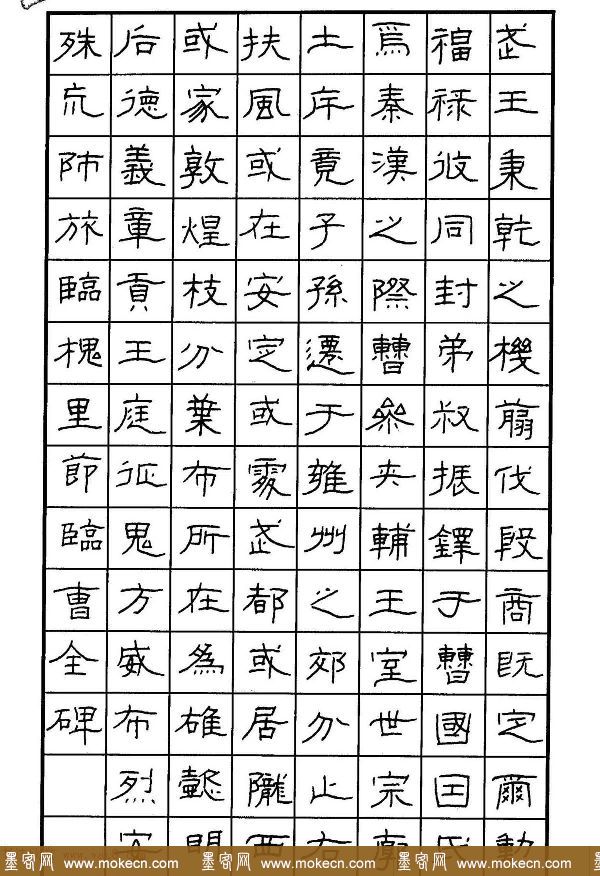 武王秉乾之機翦伐殷商既定爾勳
福祿攸同封弟叔振鐸于曹國因氏
焉秦漢之際曹參夾輔王室世宗廓
土斥竟子孫遷于雍州之郊分止右
扶風或在安定或處武都或居隴西
或家敦煌枝分葉布所在為雄懿明
后德義章貢王庭征鬼方威布烈安
殊巟師旅臨槐里節臨曹全碑
墨客网 www.mokecn.com 墨客网 www.mokecn.com 墨客网 www.mokecn.com